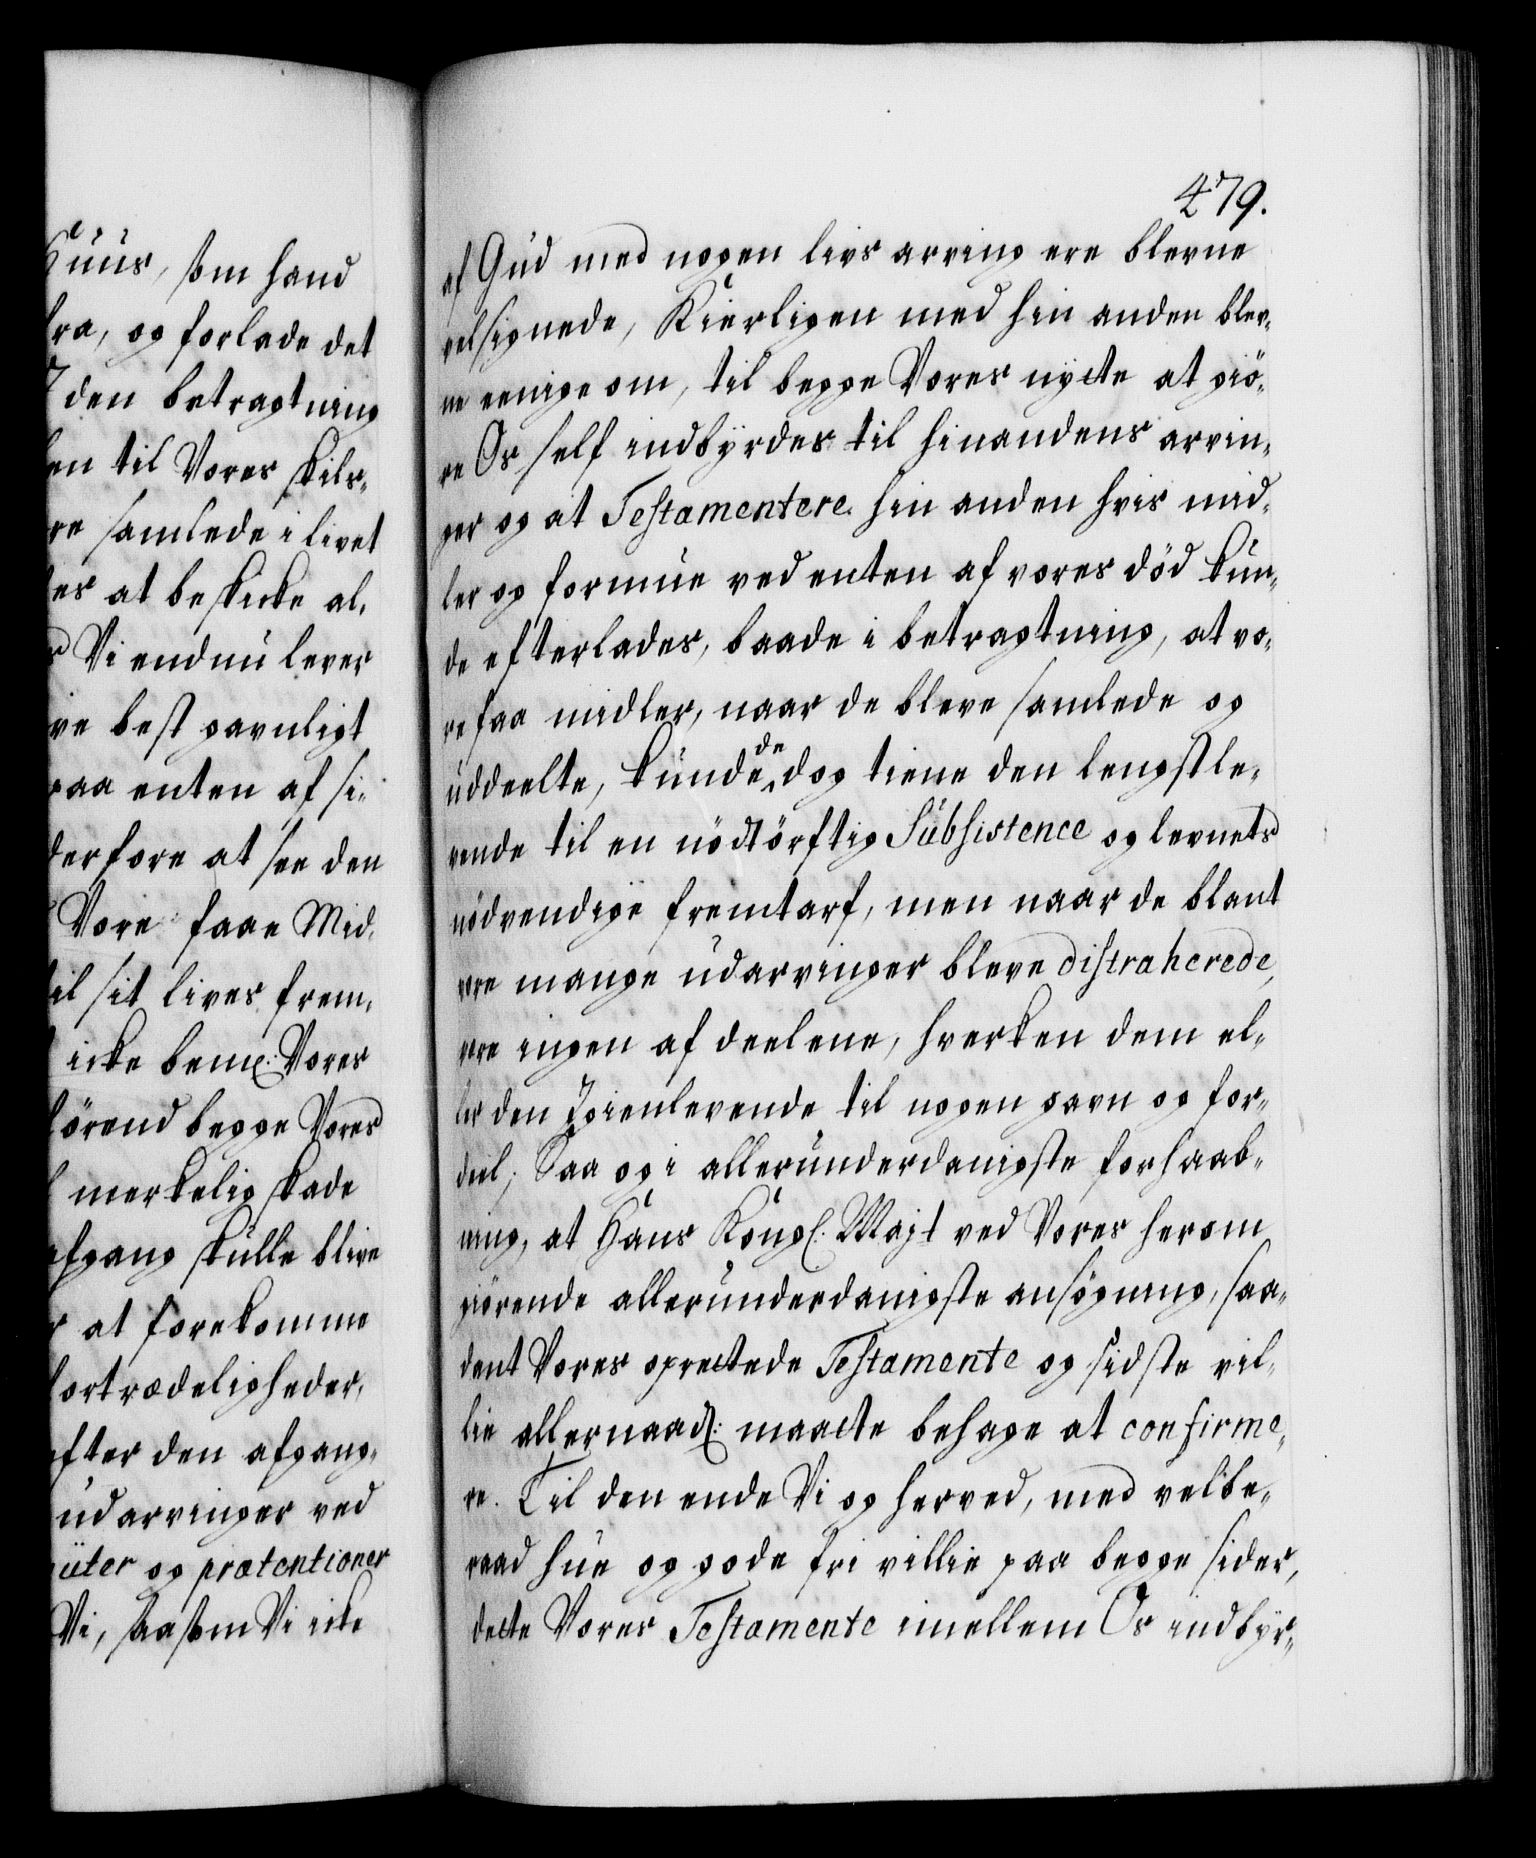 Huus, som hand
fra, og forlade det
I den betragtning
en til Vores skils-
re samlede i livet
es at beskicke al-
Vi endnu lever
ve best gavnligt
paa enten af si-
derfore at see den
Vore faae Mid-
til sit lives frem-
icke bemte: Vores
hörend begge Vores
merkelig skade
afgang skulle blive
at forekomme
fortrædeligheder,
efter den afgang-
udarvinger ved
üter og prætentioner
Vi, saasom Vi icke
479.
af Gud med nogen livs arving ere blevne
velsignede, Kierligen med hin anden blev-
ne eenige om, til begge Vores nytte at giö-
re Os self indbyrdes til hinandens arvin-
ger og at Testamentere hin anden hvis mid-
ler og formue ved enten af vores död kun-
de efterlades, baade i betragtning, at vo-
re faa midler, naar de bleve samlede og
uddeelte, kunde de dog tiene den lengstle-
vende til en nödtörftig Subsistence og levnets
nödvendige fremtarf, men naar de blant
vore mange udarvinger bleve distraherede,
vere ingen af deelene, hverken dem el-
ler den Igienlevende til nogen gavn og for-
deel; Saa og i allerunderdanigste forhaab-
ning, at Hans Kongl: Majt ved Vores herom
giörende allerunderdanigste ansögning, saa-
dant Vores oprettede Testamente og sidste vil-
lie allernaadl: maatte behage at confirme-
re. Til den ende Vi og herved, med velbe-
raad hue og gode fri villie paa begge sider,
dette Vores Testamente imellem Os indbyr-